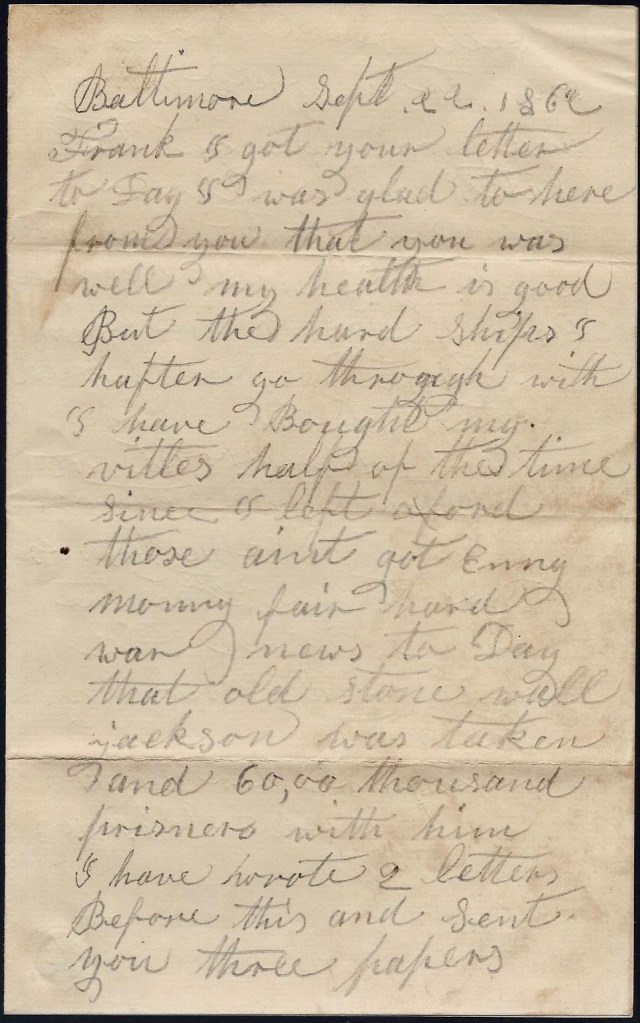 Baltimore Sept. 22. 1862
Frank I got your letter
to Day I was glad to here
from you that you was
well my health is good
But the hard ships I
hafter go through with
I have Bought my
vittles half of the time
since I left oxford
those aint got Enny
monny fair hard
war news to Day
that old stone wall
jackson was taken
and 60,00 thousand
prisners with him
I have wrote 2 letters
Before this and Sent
you three papers